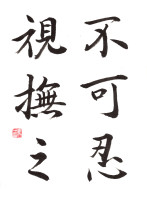 不可忍
視撫之